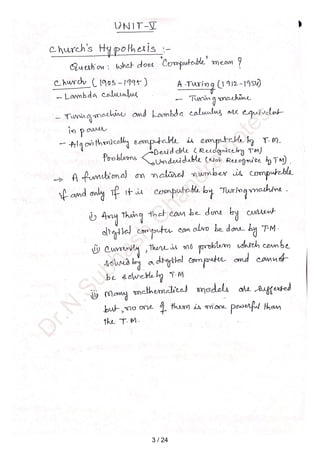 UNIT-V
Church's Hypothesis :-
Question : what does "Computable" mean ?
Church (1903-1995)    A.Turing (1912-1954)
- Lambda calculus    - Turing machine
- Turing machine and Lambda calculus are equivalent
in power
- Algorithmically computable is computable by T.M.
Problems Decidable (Recognize by TM)
Undecidable (Not Recognize by TM)
→ A functional on natural number is computable
if and only if it is computable by Turing machine.
i) Any Thing that can be done by current
digital computer can also be done by TM.
ii) Currently, there is no problem which can be
solved by a digital computer and cannot
be solvable by T.M
iii) Many mathematical models are suggested
but, no one of them is more powerful than
the T.M.
3 / 24